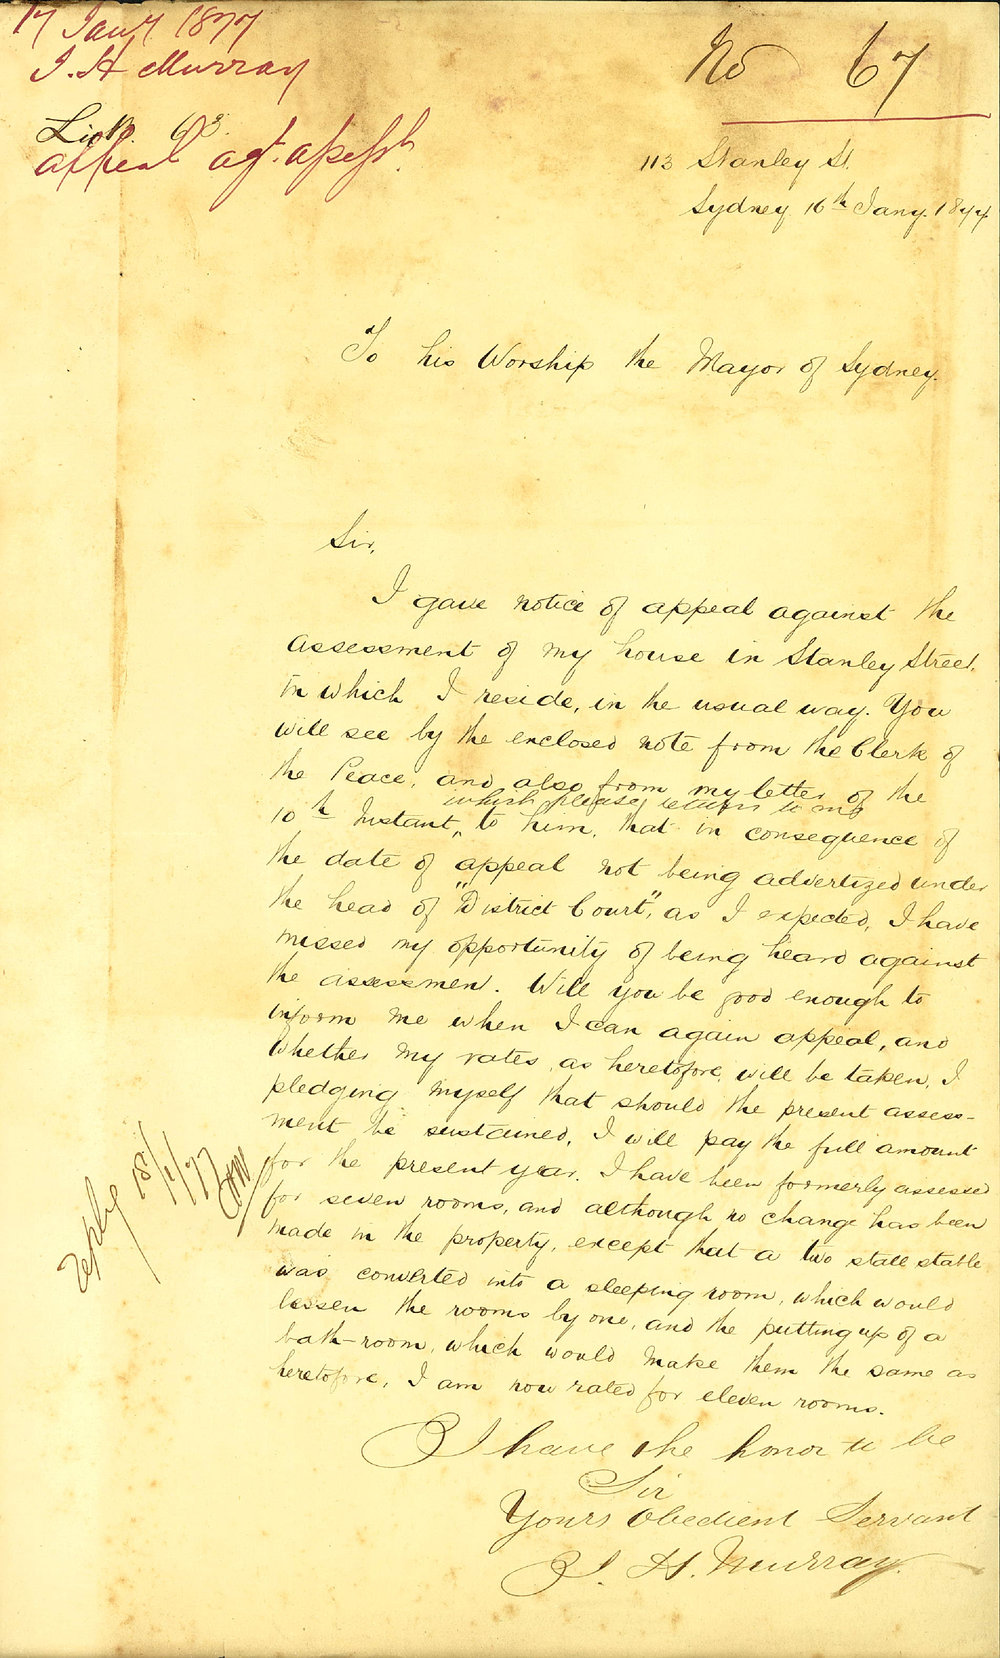 17 Jany 1877
J. H Murray
appeal agt. assesst.
No 67
113 Stanley St.
Sydney 16th Jany. 1877
To his Worship the Mayor of Sydney.
Sir,
I gave notice of appeal against the
assessment of my house in Stanley Street.
in which I reside, in the usual way. You
will see by the enclosed note from the Clerk of
the Peace, and also from my letter of the
which please return to me
10th Instant, to him, that in consequence of
the date of appeal not being advertized under
the head of "District Court", as I expected, I have
missed my opportunity of being heard against
the assessment. Will you be good enough to
inform me when I can again appeal, and
whether my rates, as heretofore, will be taken, I
pledging myself that should the present assess-
ment be sustained, I will pay the full amount
for the present year. I have been formerly assessed
for seven rooms, and although no change has been
made in the property, except that a two stall stable
was converted into a sleeping room, which would
lessen the rooms by one, and the putting up of a
bath-room, which would make them the same as
heretofore, I am now rated for eleven rooms.
I have the honor to be
Sir
Yours Obedient Servant
J. H. Murray.
reply 18/1/77